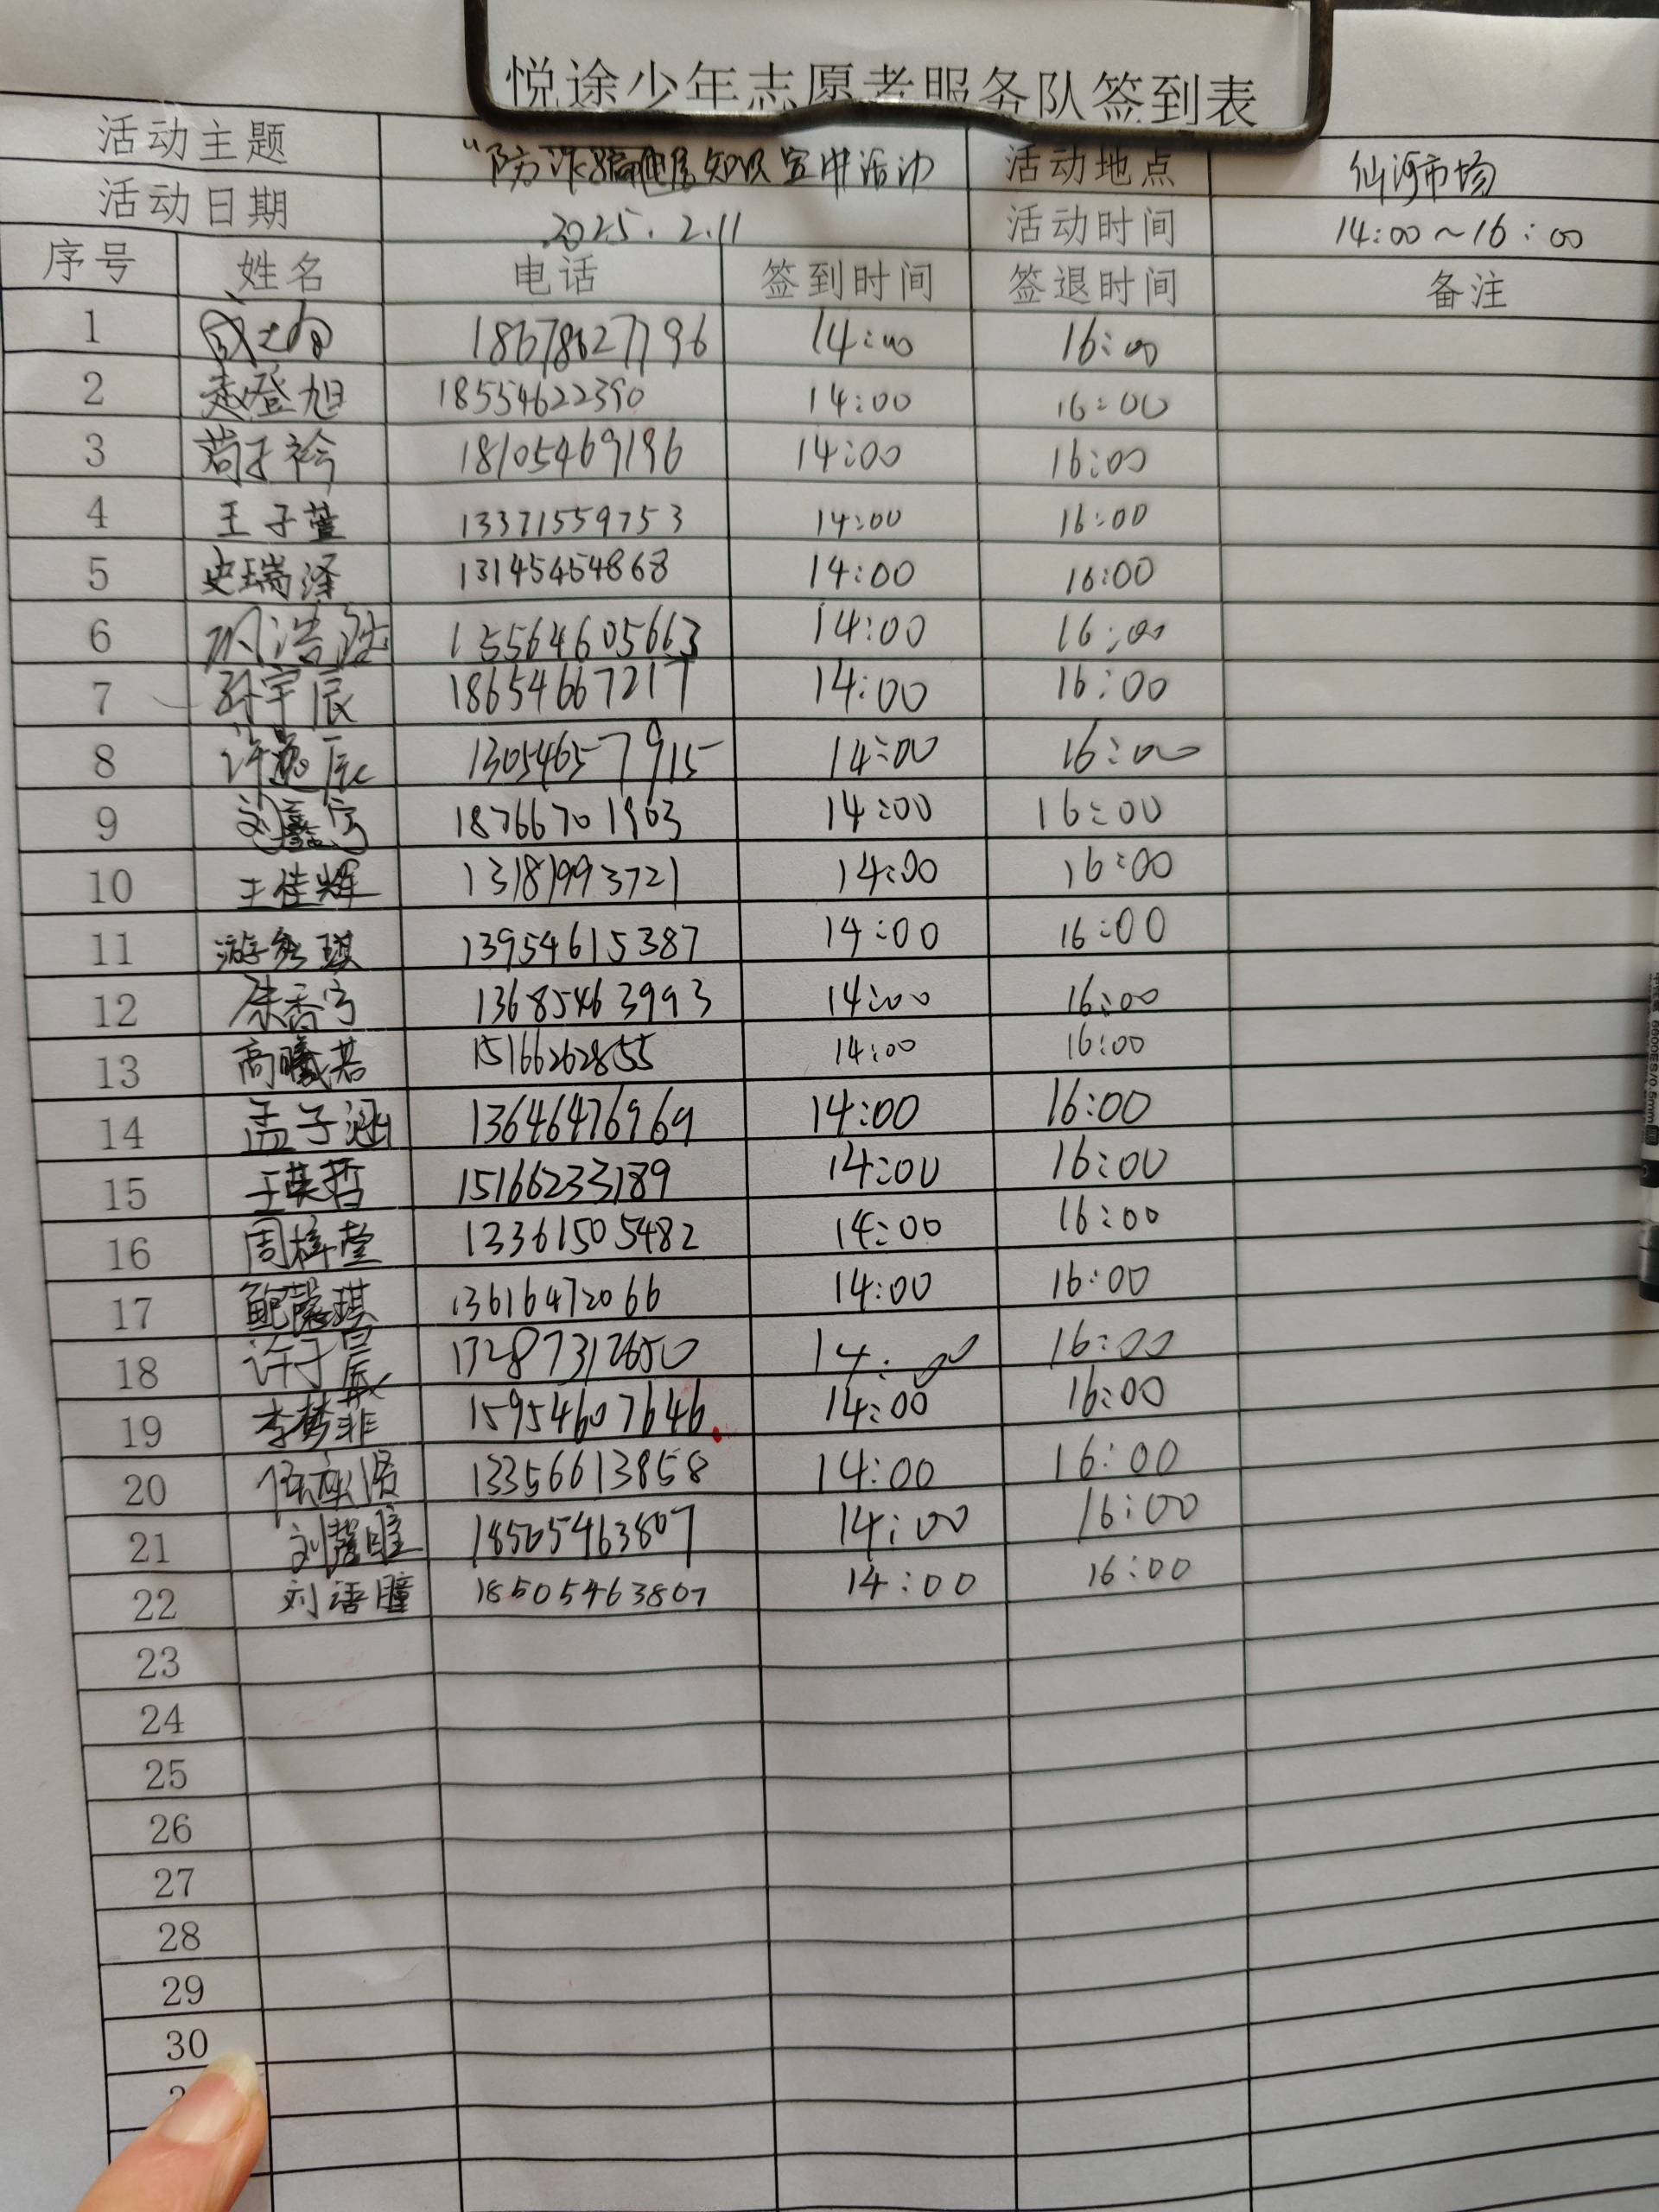 悦途少年志愿者服务队签到表
活动主题 "防诈骗 知识宣讲活动 活动地点 仙河市场
活动日期 2025.2.11 活动时间 14:00~16:00
序号 姓名 电话 签到时间 签退时间 备注
1 18678627796 14:00 16:00
2 赵登旭 18554622390 14:00 16:00
3 荀子衿 18105469196 14:00 16:00
4 王子萱 13371559753 14:00 16:00
5 史瑞泽 13145454868 14:00 16:00
6 浩 14:00 16:00
7 孙宇辰 18654667217 14:00 16:00
8 许逸辰 13054657915 14:00 16:00
9 刘鑫宇 18766701903 14:00 16:00
10 王佳辉 13181993721 14:00 16:00
11 游 琪 13954615387 14:00 16:00
12 13685463993 14:00 16:00
13 高曦若 15166262855 14:00 16:00
14 孟子涵 13646476969 14:00 16:00
15 王英哲 15166233189 14:00 16:00
16 周梓萱 13361505482 14:00 16:00
17 鲍馨琪 13616472066 14:00 16:00
18 许子宸 13287312650 14:00 16:00
19 李梦菲 15954607646 14:00 16:00
20 13356613858 14:00 16:00
21 刘 18505463807 14:00 16:00
22 刘语瞳 18505463807 14:00 16:00
23
24
25
26
27
28
29
30